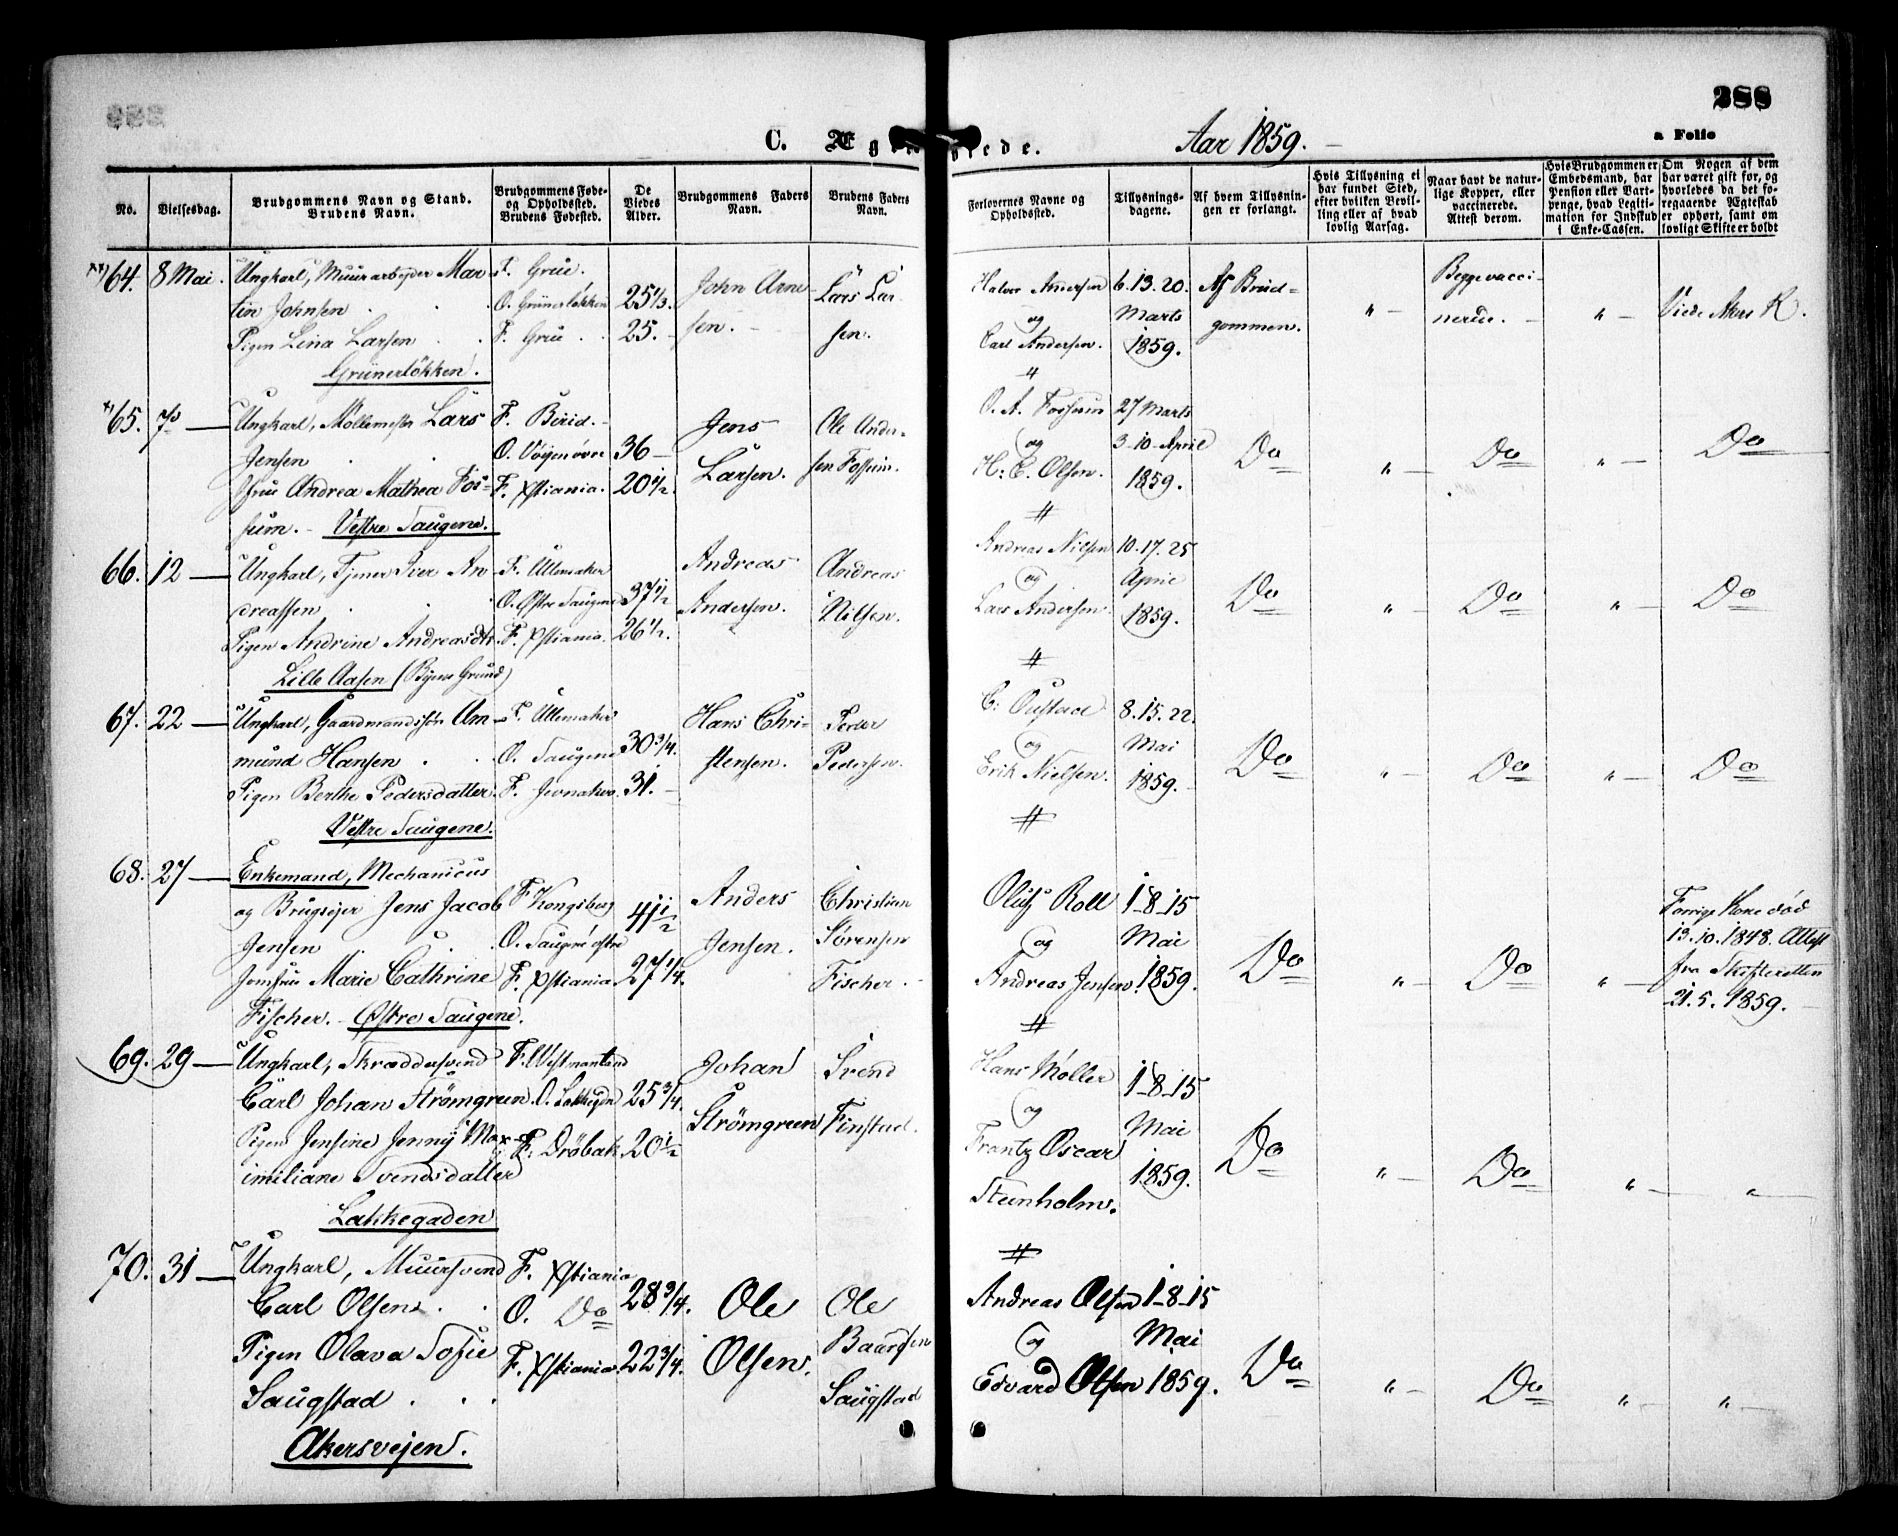 288
C. Ægteviede. Aar 1859. a Folio
No. Vielsesdag. Brudgommens Navn og Stand. Brudens Navn. Brudgommens Føde- og Opholdssted. Brudens Fødested. De Viedes Alder. Brudgommens Faders Navn. Brudens Faders Navn.
Forlovernes Navne og Opholdssted. Tillysnings-dagene. Af hvem Tillysningen er forlangt. Hvis Tillysning ei har fundet Sted, efter hvilken Bevilling eller af hvad lovlig Aarsag. Naar havt de naturlige Kopper, eller vaccinerede. Attest derom. Hvis Brudgommen er Embedsmand, har Pension eller Vartpenge, hvad Legitimation for Indskud i Enke-Cassen. Om Nogen af dem har været gift før, og hvorledes da det foregaaende Ægteskab er ophørt, samt om lovligt Skifte er holdt
64. 8 Mai. Ungkarl, Muurarbeyder Mar- F. Grue. John Arne- Lars Lar- Halvor Andersen 6.13.20. Af Brud- Begge vacci-
tin Johnsen O. Grünerløkken 25 1/3. sen. sen. og Marts gommen. " nerede. " Viede Akers K.
Pigen Lina Larsen F. Grue 25. Carl Andersen. 1859.
Grünerløkken.
65. 7 Ungkarl, Møllemester Lars F. Birid. Jens Ole Ander- O. A. Fossum 27 Marts
Jensen O. Vøiyen øvre 36 Larsen. sen Fossum. og 3-10-April Do " Do " Do
Jfru Andrea Mathea Fos- F. Xstiania. 20 1/2. H. C. Olsen. 1859.
sum. Vestre Saugene.
66. 12 Ungkarl, Tjener Iver An- F. Ullensaker Andreas Andreas Andreas Nilsen 10.17.25
dreassen O. Østre Saugene 37 1/2 Andersen. Nilsen. og April Do " Do " Do
Pigen Andrine Andreasdtr. F. Xstiania. 26 1/2. Lars Andersen. 1859.
Lille Aasen (Byens Grund)
67. 22 Ungkarl, Gaardmandssøn Am- F. Ullensaker Hans Chri- Peder C. Oustad 8.15.22.
mund Hansen O. Saugene 30 3/4. stensen. Pedersen. og Mai Do " Do " Do
Pigen Berthe Pedersdatter F. Jevnaker. 31. Erik Nielsen. 1859.
Vestre Saugene.
68. 27 Enkemand, Mechanicus Anders Christian Oluf Roll 1-8-15 Forrige Kone død
og Brugsejer Jens Jacob F. Kongsberg 41 1/2 Jensen. Sørensen og Mai Do " Do " 13.10.1848. Attest
Jensen O. Saugene østre Fischer. Andreas Jensen. 1859. fra Skifteretten
Jomfru Marie Cathrine F. Xstiania. 27 1/4. 21.5.1859.
Fischer. Østre Saugene.
69. 29 Ungkarl, Skræddersvend F. Westmanland Johan Svend Hans Møller 1-8-15
Carl Johan Strömgreen O. Lakkegdn 25 3/4. Strömgreen Finstad. og Mai Do " Do " "
Pigen Jensine Jenny Max- F. Drøbak. 20 1/2 Frantz Oscar 1859.
imiliane Svendsdatter Steenholm.
Lakkegaden
70. 31 Ungkarl, Muursvend F. Xstiania
Carl Olsen O. Do 28 3/4. Ole Ole Andreas Olsen 1-8-15
Pigen Olava Sofie F. Xstiania. 22 3/4. Olsen. Baardsen og Mai Do " Do " "
Saugstad Saugstad Edvard Olsen 1859.
Akersvejen.